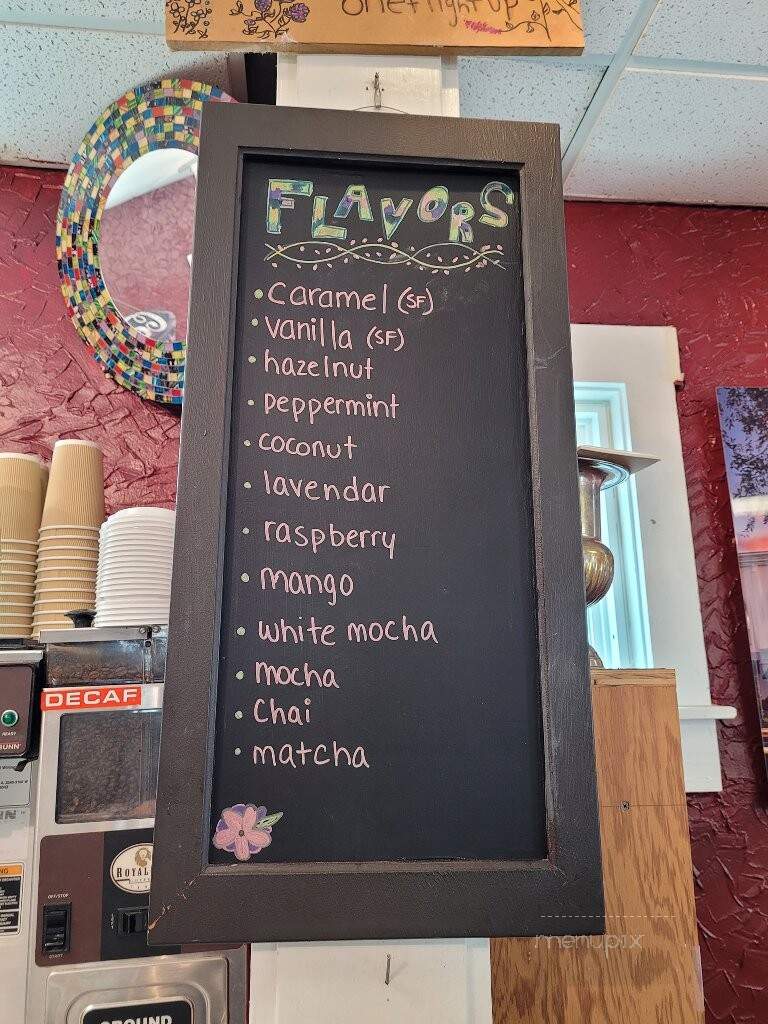 one flight up
FLAVORS
• caramel (SF)
• vanilla (SF)
• hazelnut
• peppermint
• coconut
• lavendar
• raspberry
• mango
• white mocha
• mocha
• Chai
• matcha
DECAF
READY
BUNN
ROYAL
OFF/STOP
START
GROUND
menupix